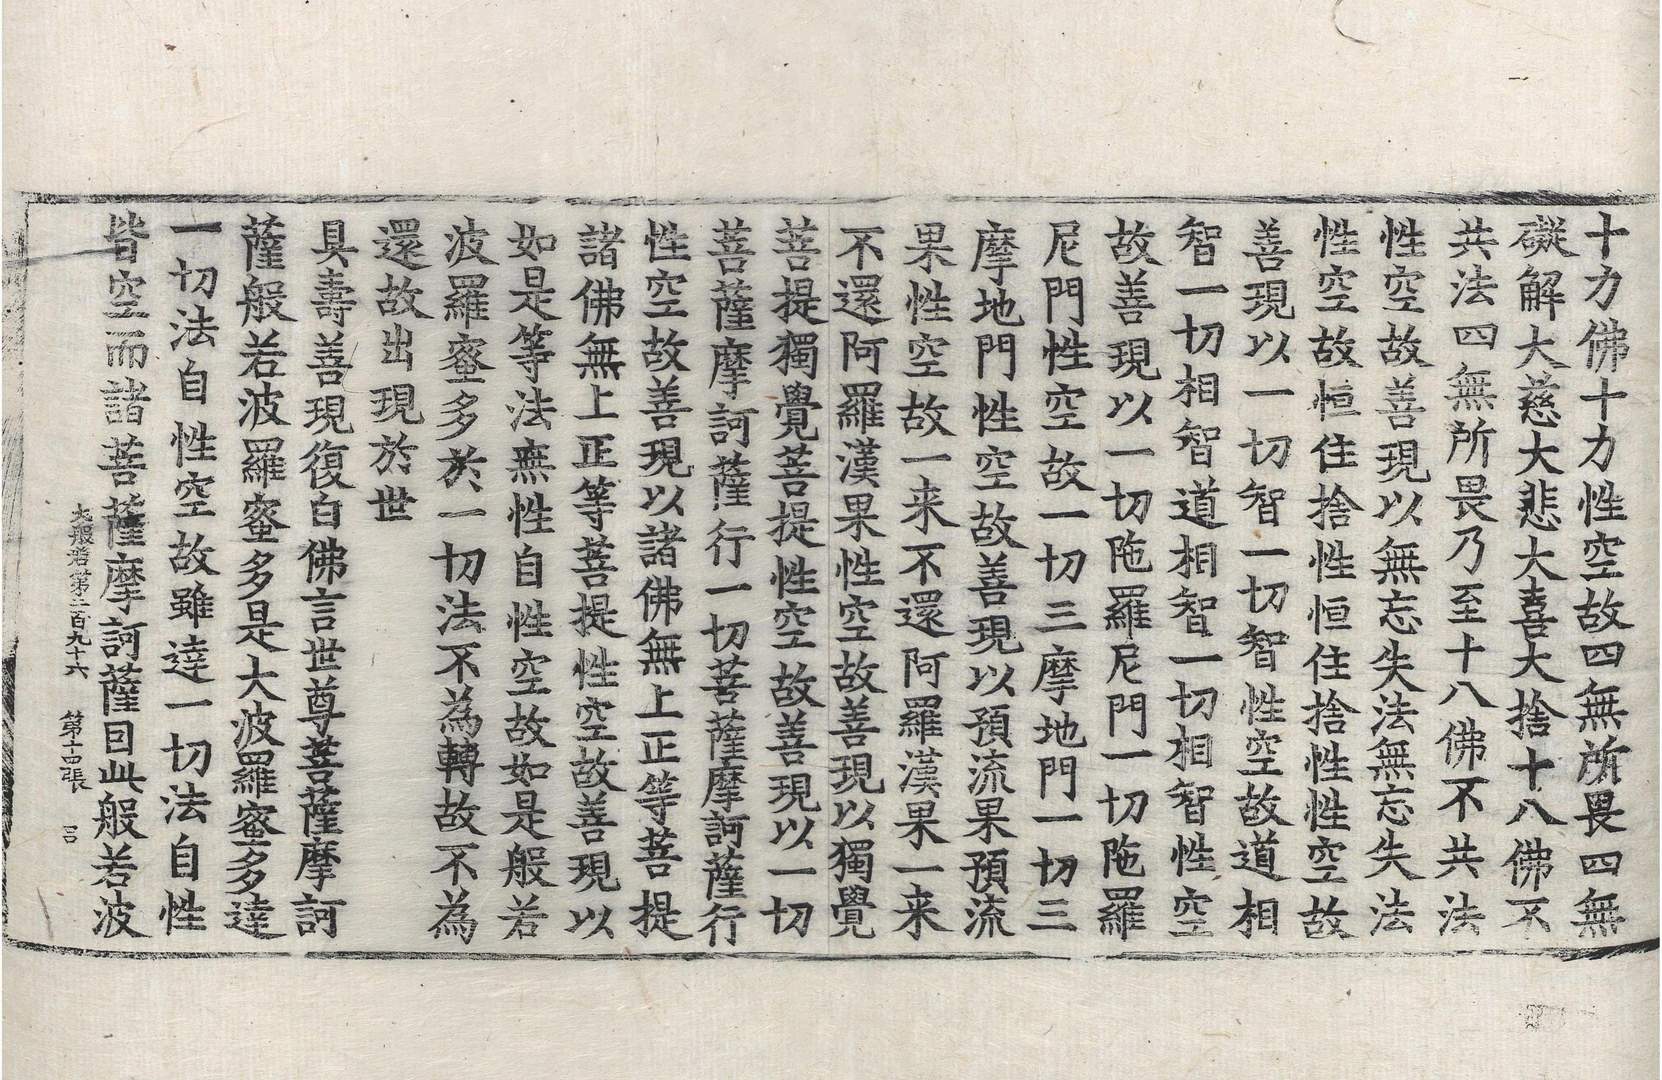 十力佛十力性空故四無所畏四無
礙解大慈大悲大喜大捨十八佛不
共法四無所畏乃至十八佛不共法
性空故善現以無忘失法無忘失法
性空故恒住捨性恒住捨性性空故
善現以一切智一切智性空故道相
智一切相智道相智一切相智性空
故善現以一切陁羅尼門一切陁羅
尼門性空故一切三摩地門一切三
摩地門性空故善現以預流果預流
果性空故一来不還阿羅漢果一来
不還阿羅漢果性空故善現以獨覺
菩提獨覺菩提性空故善現以一切
菩薩摩訶薩行一切菩薩摩訶薩行
性空故善現以諸佛無上正等菩提
諸佛無上正等菩提性空故善現以
如是等法無性自性空故如是般若
波羅蜜多於一切法不為轉故不為
還故出現於世
具壽善現復白佛言世尊菩薩摩訶
薩般若波羅蜜多是大波羅蜜多達
一切法自性空故雖達一切法自性
皆空而諸菩薩摩訶薩因此般若波
大般若第二百九十六　第十四張　吕